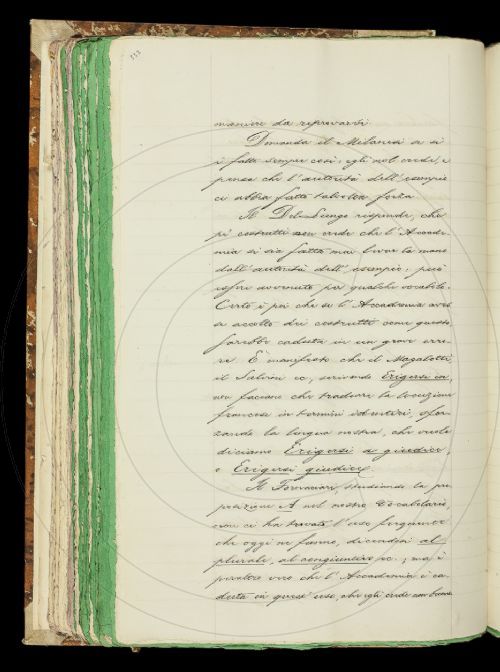 332
maniere da riprovarsi.
Domanda il Milanesi se si
è fatto sempre così; egli nol crede, e
pensa che l'autorità dell'esempio
ci abbia fatto talvolta forza.
Il Del Lungo risponde, che
pe' costrutti non crede che l'Accade-
mia si sia fatta mai levar la mano
dall'autorità dell'esempio; può
esser avvenuto per qualche vocabolo.
Certo è poi che se l'Accademia aves
se accolto dei costrutti come questo,
sarebbe caduta in un grave erro-
re. È manifesto che il Magalotti,
il Salvini ec., scrivendo Erigersi in,
non facevano che tradurre la locuzione
francese in termini identici, sfor-
zando la lingua nostra, che vuole
diciamo Erigersi a giudice,
o Erigersi giudice.
Il Tortoli, studiando la pre-
posizione A nel nostro Vocabolario,
non ci ha trovato l'uso frequente
che oggi ne fanno, dicendosi al
plurale, al congiuntivo ec.; ma è
persuaso che l'Accademia è ca-
duta in quest'uso, che egli crede non buono